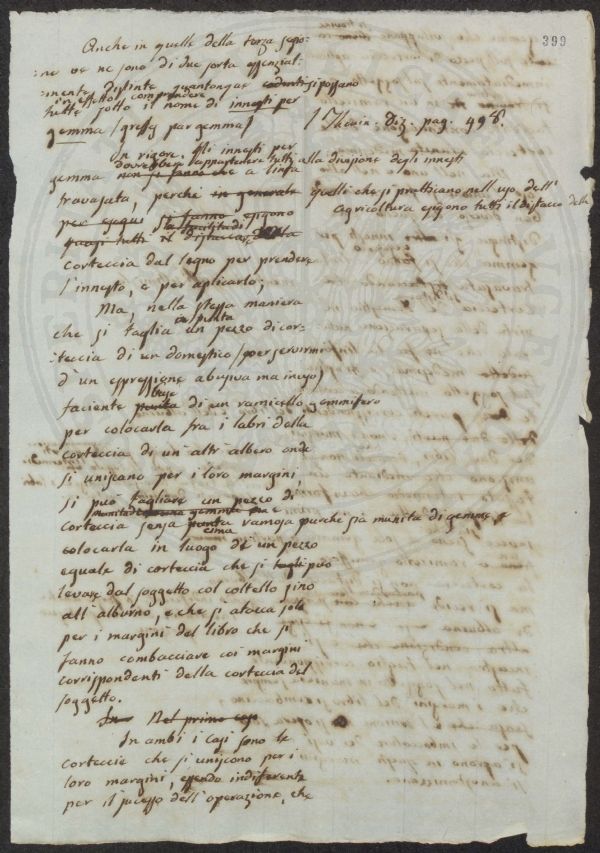 399
Anche in quelle della terza sezio:
:ne ve ne sono di due sorta essenzial:
:mente distinte quantunque si possano
in effetto comprendere
tutte sotto il nome di innesti per
gemma (greffes par gemma) (Thouin. Diz. pag. 498.
In rigore. Gli innesti per
dovrebbero appartenere tutti alla divisione degli innesti
gemma non si fanno che a linfa
travasata, perchè in generale quelli che si pratticano nell'uso dell'
Agricoltura esigono tutti il distacco della
per esequi si fanno esigono
quasi tutti il distaccar
corteccia dal legno per prendere
l'innesto, e per aplicarlo;
Ma, nella stessa maniera
che si taglia in punta un pezzo di cor:
:teccia di un domestico (per servirmi
d'un espressione abusiva ma in uso)
base
faciente punta di un ramicello gemmifero
per colocarla fra i labri della
corteccia di un'altr'albero onde
si uniscano per i loro margini,
si può tagliare un pezzo di
munita di una gemma
corteccia senza punta ramosa purchè sia munita di gemme, e
cima
colocarla in luogo di un pezzo
eguale di corteccia che si può
levare dal soggetto col coltello sino
all'alburno, e che si atacca solo
per i margini del libro che si
fanno combacciare coi margini
corrispondenti della corteccia del
soggetto.
In Nel primo caso
In ambi i casi sono le
corteccie che si uniscono per i
loro margini, essendo indifferente
per il sucesso dell'operazione, che